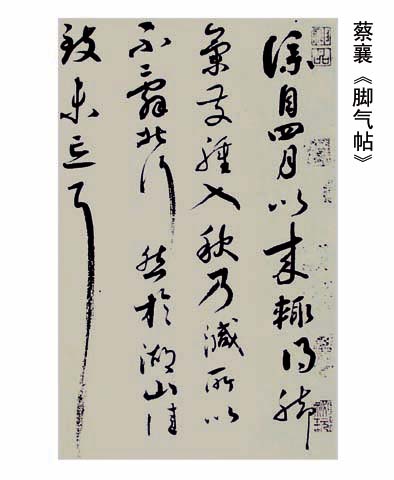 蔡襄《脚气帖》
僕自四月以来輙得脚
氣發腫入秋乃減所以
不辭北行然於湖山佳
致未忘耳